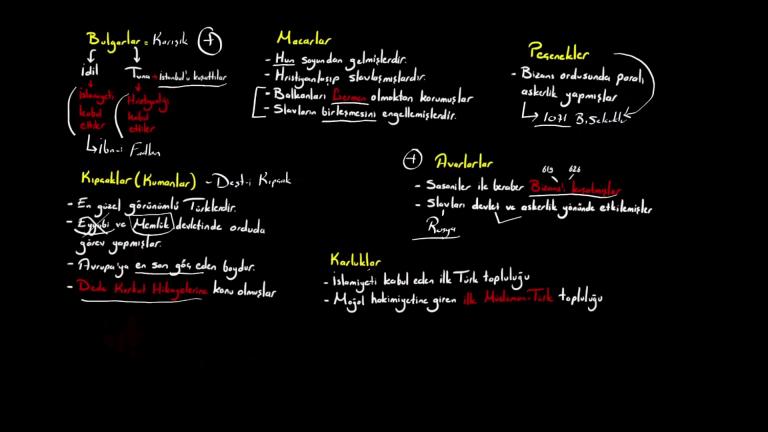 Bulgarlar = Karışık +
İdil
Tuna → İstanbul'u kuşattılar
İslamiyeti
kabul
ettiler
Hristiyanlığı
kabul
ettiler
↳ İbni Fadlan
Macarlar
- Hun soyundan gelmişlerdir.
- Hristiyanlaşıp slavlaşmışlardır.
- Balkanları German olmaktan korumuşlar
- Slavların birleşmesini engellemişlerdir.
Peçenekler
- Bizans ordusunda paralı
askerlik yapmışlar
↳ 1071
Kıpçaklar (Kumanlar) - Deşt-i Kıpçak
- En güzel görünümlü Türklerdir.
- Eyyübi ve Memlük devletinde orduda
görev yapmışlar.
- Avrupa'ya en son göç eden boydur.
- Dede Korkut Hikayelerine konu olmuşlar
+ Avarlar
619 626
- Sasaniler ile beraber Bizans'ı kuşatmışlar
- Slavları devlet ve askerlik yönünde etkilemişler
Rusya
Karluklar
- İslamiyeti kabul eden ilk Türk topluluğu
- Moğol hakimiyetine giren ilk Müslüman-Türk topluluğu